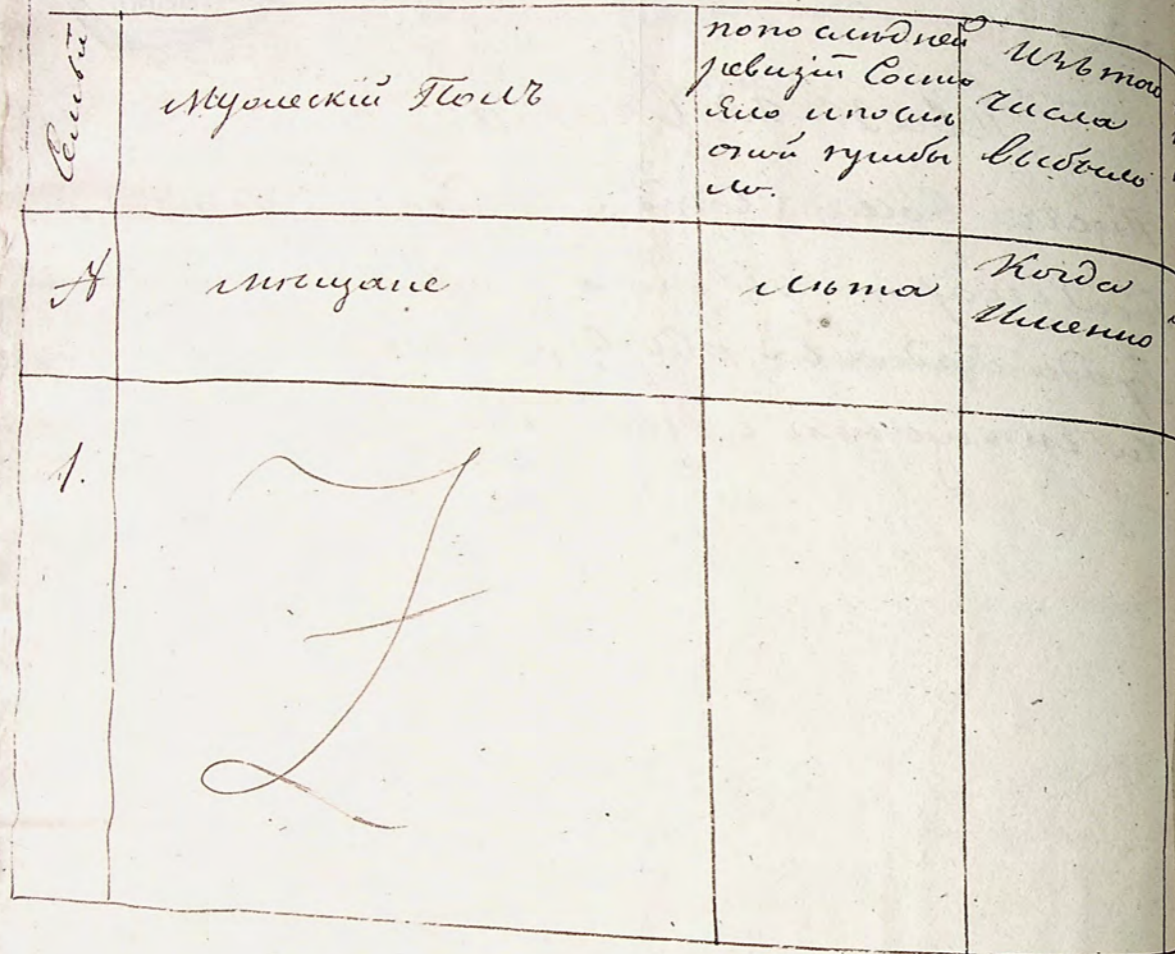 Семьи
Мужескій Полъ
попослѣдней
ревизіи Состо
яло ипослѣ
оной прибы
ло
Изъ того
числа
выбыло
№
мѣщане
лѣта
Когда
Именно
1.